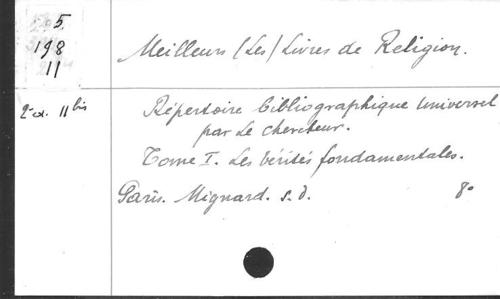 5
198
11
Meilleurs (Les) Livres de Religion.
2e ed. 11 bis
Répertoire bibliographique universel
par Le Chercheur.
Tome I. Les vérités fondamentales.
Paris. Mignard. s.d. 8°